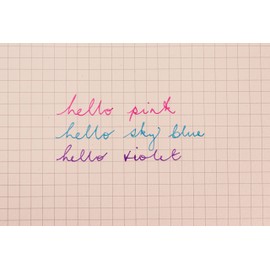 hello pink
hello sky blue
hello violet